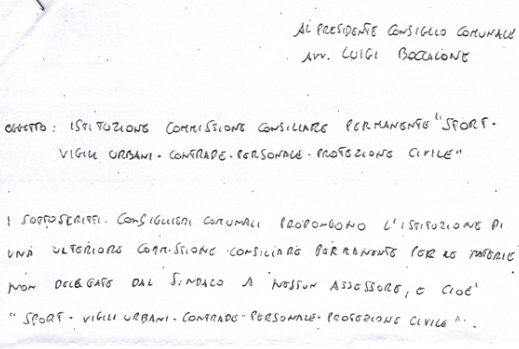 AL PRESIDENTE CONSIGLIO COMUNALE
AVV. LUIGI BOCCALONE
OGGETTO: ISTITUZIONE COMMISSIONE CONSILIARE PERMANENTE "SPORT -
VIGILI URBANI - CONTRADE - PERSONALE - PROTEZIONE CIVILE"
I SOTTOSCRITTI CONSIGLIERI COMUNALI PROPONGONO L'ISTITUZIONE DI
UNA ULTERIORE COMMISSIONE CONSILIARE PERMANENTE PER LE MATERIE
NON DELEGATE DAL SINDACO A NESSUN ASSESSORE, E CIOE'
"SPORT - VIGILI URBANI - CONTRADE - PERSONALE - PROTEZIONE CIVILE".